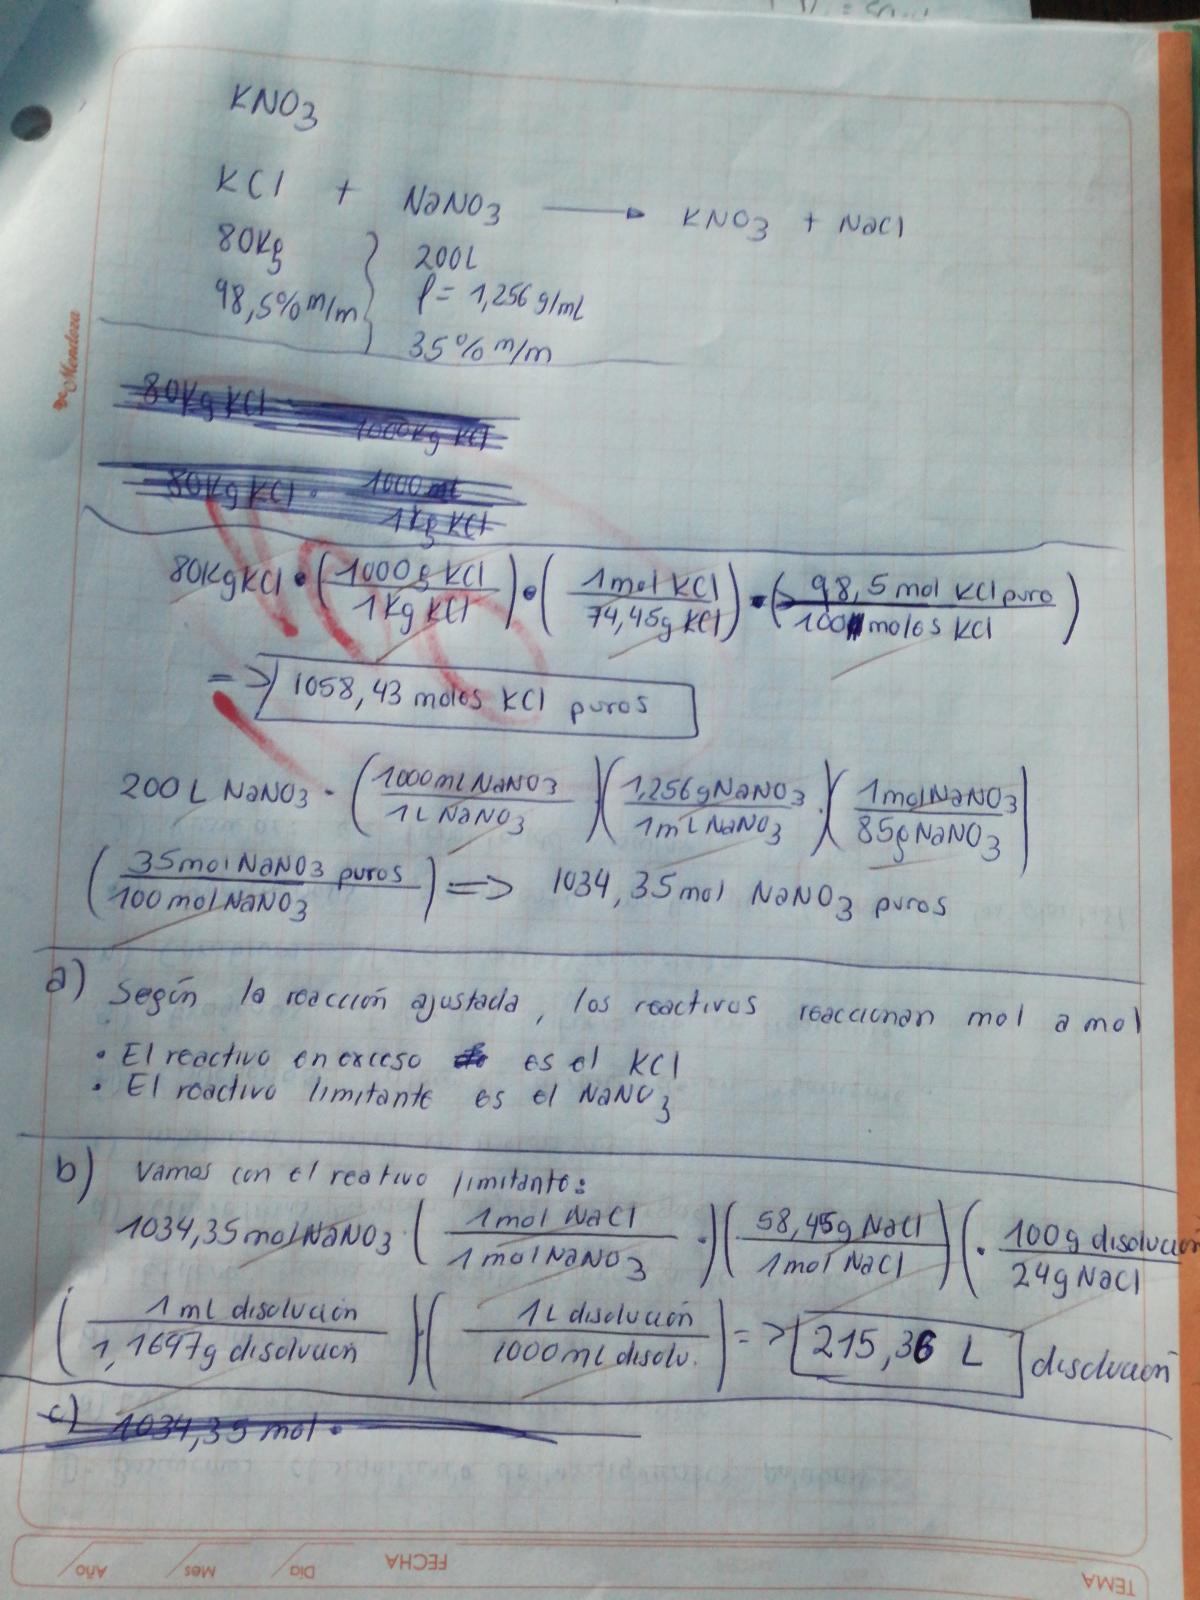 KNO3
KCl + NaNO3 → KNO3 + NaCl
80Kg } 200L
98,5% m/m } ρ = 1,256 g/mL
35% m/m
De Mendoza
80Kg KCl
1000Kg KCl
80Kg KCl · 1000
1Kg KCl
80KgKCl · (1000g KCl / 1Kg KCl) · (1mol KCl / 74,45g KCl) · (98,5 mol KCl puro / 100 moles KCl)
=> 1058,43 moles KCl puros
200 L NaNO3 · (1000mL NaNO3 / 1L NaNO3) (1,256g NaNO3 / 1mL NaNO3) · (1molNaNO3 / 85g NaNO3)
(35mol NaNO3 puros / 100 mol NaNO3) => 1034,35 mol NaNO3 puros
a) Según la reacción ajustada, los reactivos reaccionan mol a mol
· El reactivo en exceso es el KCl
· El reactivo limitante es el NaNO3
b) Vamos con el reativo limitante:
1034,35 mol NaNO3 · (1mol NaCl / 1molNaNO3) · (58,45g NaCl / 1mol NaCl) ( · 100g disolución / 24g NaCl
(1 ml disolución / 1,1697g disolución) · (1L disolución / 1000mL disolu.) => 215,36 L disolución
c) 1034,35 mol ·
TEMA
FECHA
Día
Mes
Año